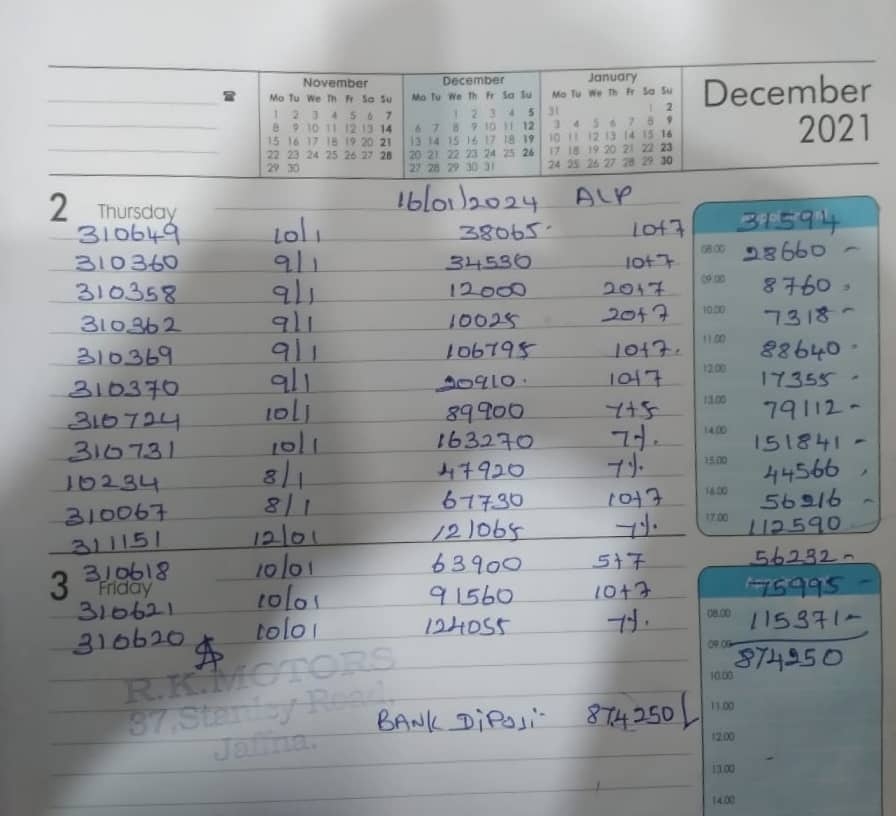 November December January
Mo Tu We Th Fr Sa Su Mo Tu We Th Fr Sa Su Mo Tu We Th Fr Sa Su
1 2 3 4 5 6 7 1 2 3 4 5 31 1 2
8 9 10 11 12 13 14 6 7 8 9 10 11 12 3 4 5 6 7 8 9
15 16 17 18 19 20 21 13 14 15 16 17 18 19 10 11 12 13 14 15 16
22 23 24 25 26 27 28 20 21 22 23 24 25 26 17 18 19 20 21 22 23
29 30 27 28 29 30 31 24 25 26 27 28 29 30
December
2021
16/01/2024 ALP
2 Thursday
310649 10/1 38065 10+7 31594
310360 9/1 34530 10+7 08.00 28660
310358 9/1 12000 20+7 09.00 8760
310362 9/1 10025 20+7 10.00 7318
310369 9/1 106795 10+7 11.00 88640
310370 9/1 20910 10+7 12.00 17355
310724 10/1 89900 7+5 13.00 79112
310731 10/1 163270 7% 14.00 151841
10234 8/1 47920 7% 15.00 44566
310067 8/1 67730 10+7 16.00 56216
311151 12/01 121065 7% 17.00 112590
310618 10/01 63900 5+7 56232
3 Friday
310621 10/01 91560 10+7 75995
310620 10/01 124055 7% 08.00 115371
09.00 874250
R.K.MOTORS
37,Stanley Road,
Jaffna.
10.00
BANK DiPosi- 874250 11.00
12.00
13.00
14.00